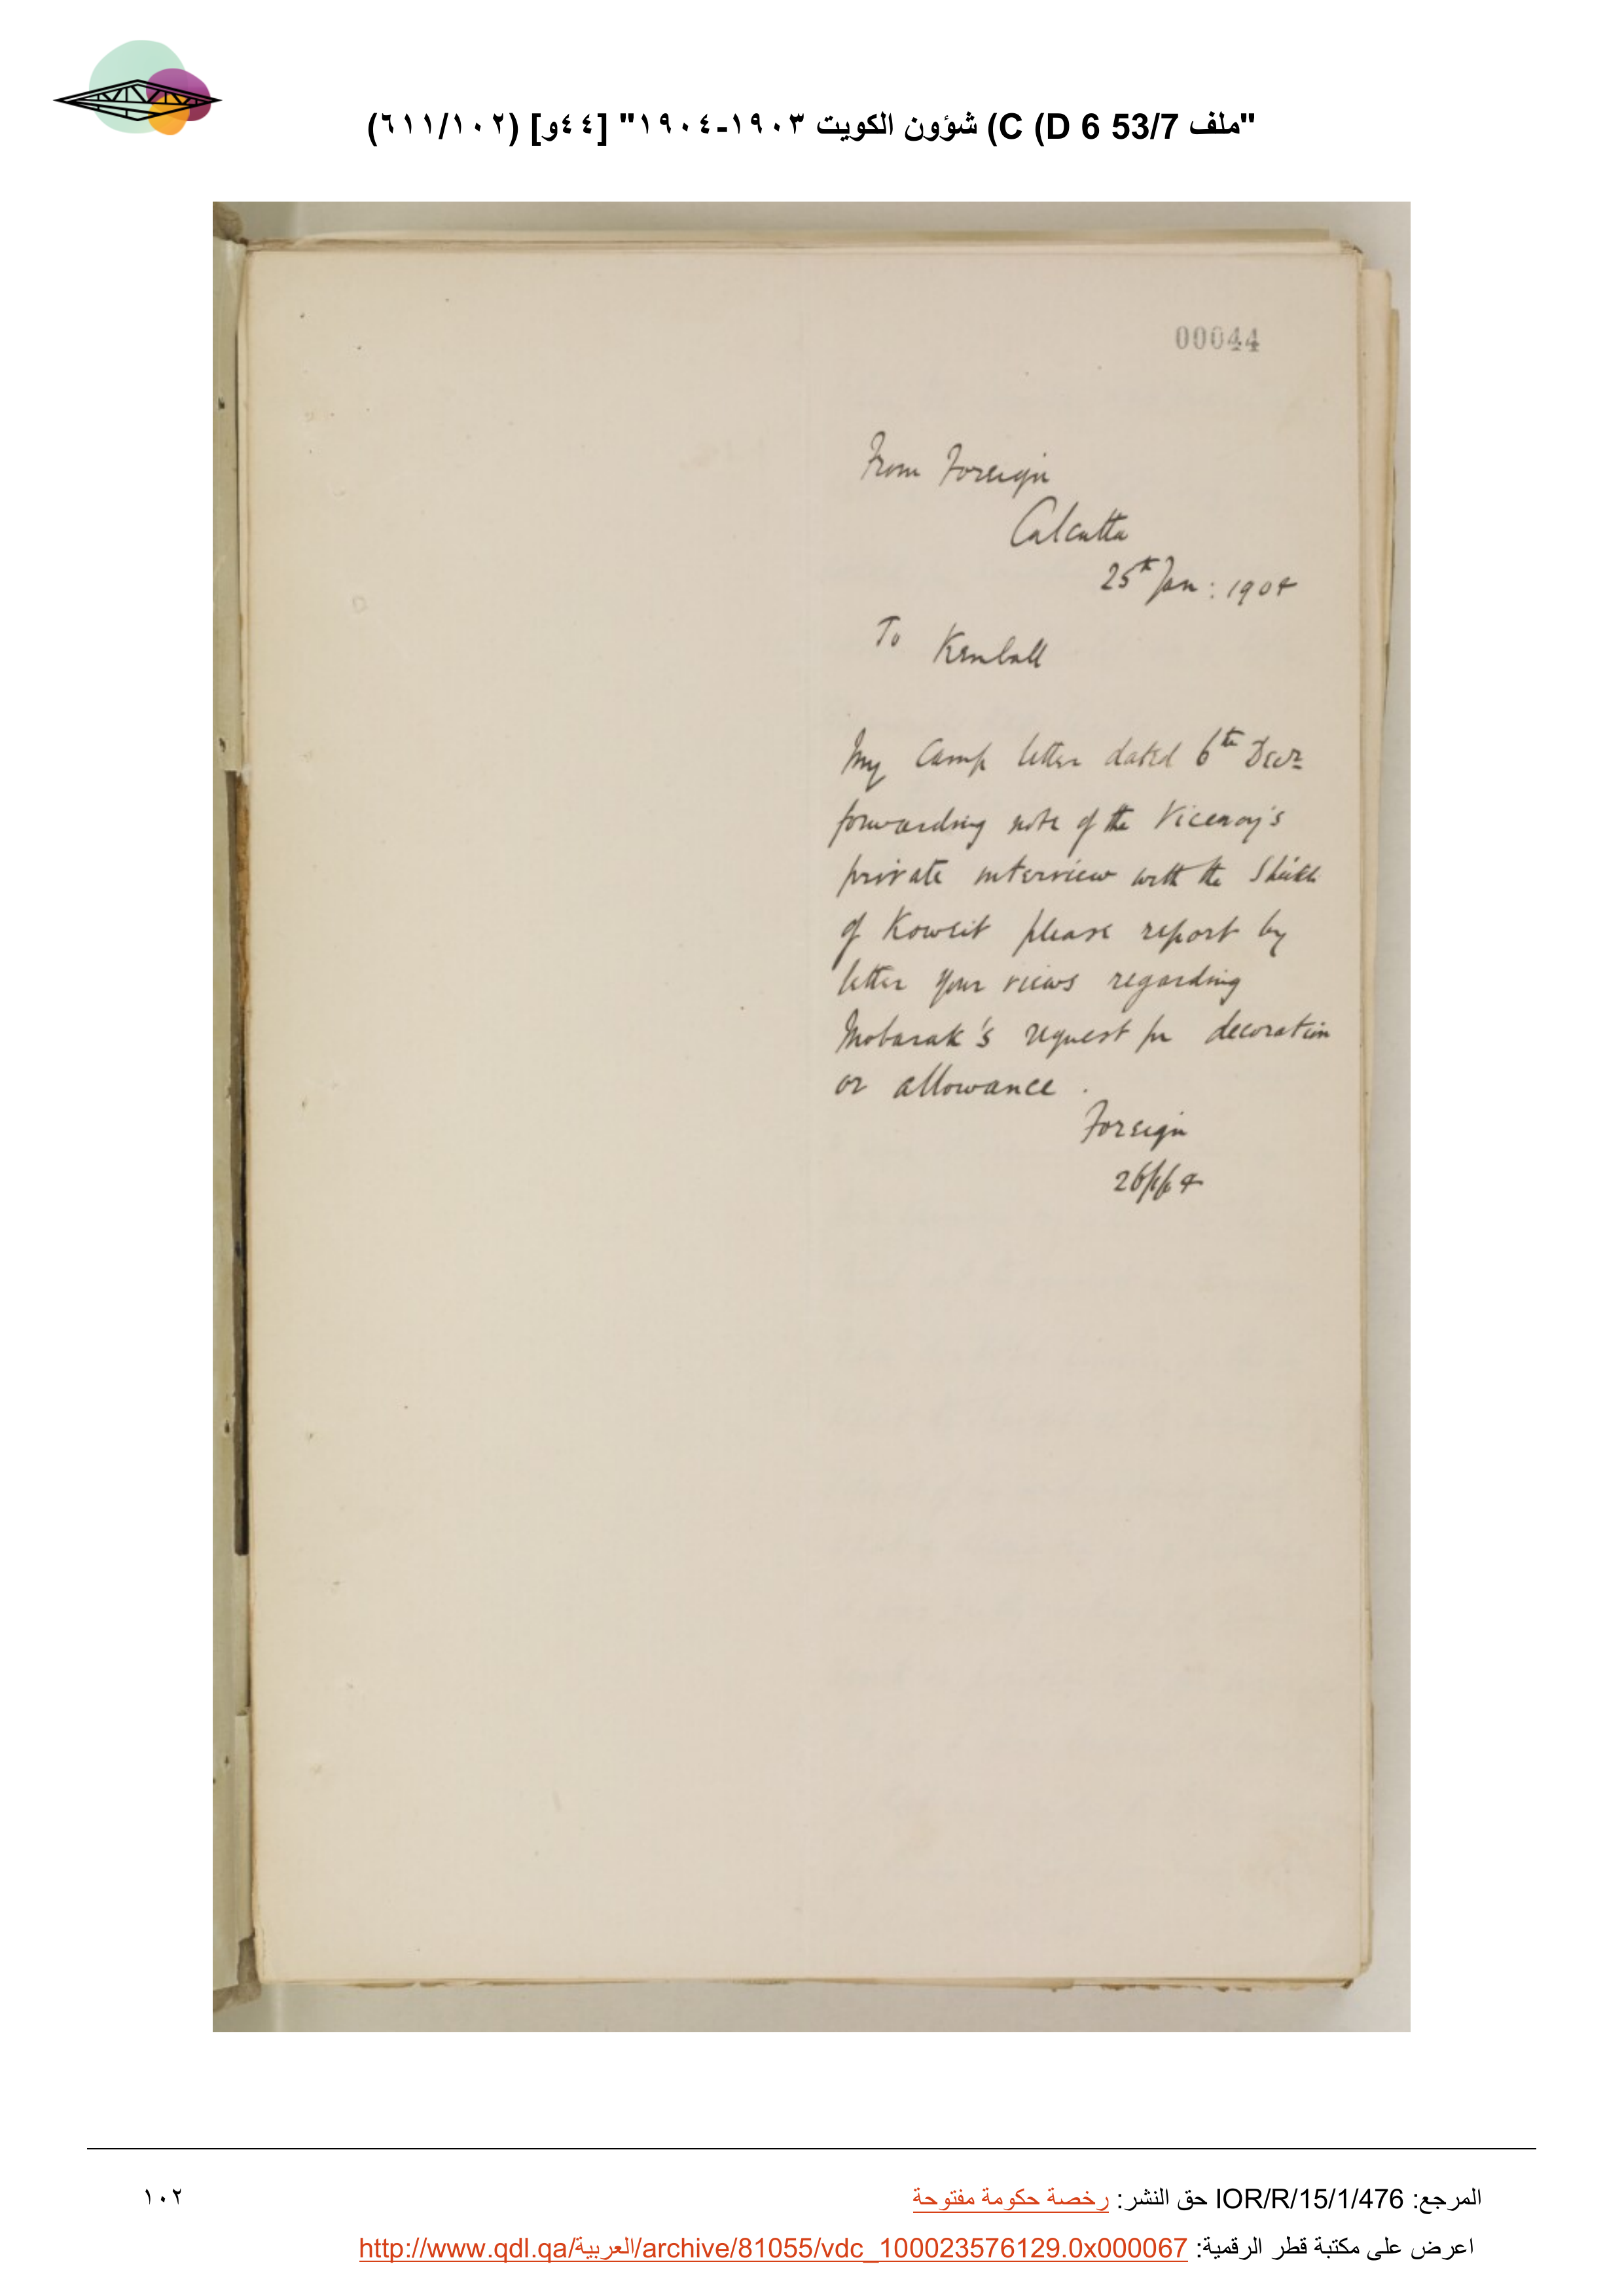 "ملف 53/7 D 6) C) شؤون الكويت ١٩٠٣-١٩٠٤" [٤٤و] (٦١١/١٠٢)
00044
From Foreign
Calcutta
25th Jan: 1904
To Kemball
My Camp letter dated 6th Decr
forwarding note of the Viceroy's
private interview with the Sheikh
of Koweit please report by
letter your views regarding
Mobarak's request for decoration
or allowance.
Foreign
26/1/4
المرجع: IOR/R/15/1/476 حق النشر: رخصة حكومة مفتوحة
١٠٢
اعرض على مكتبة قطر الرقمية: http://www.qdl.qa/العربية/archive/81055/vdc_100023576129.0x000067